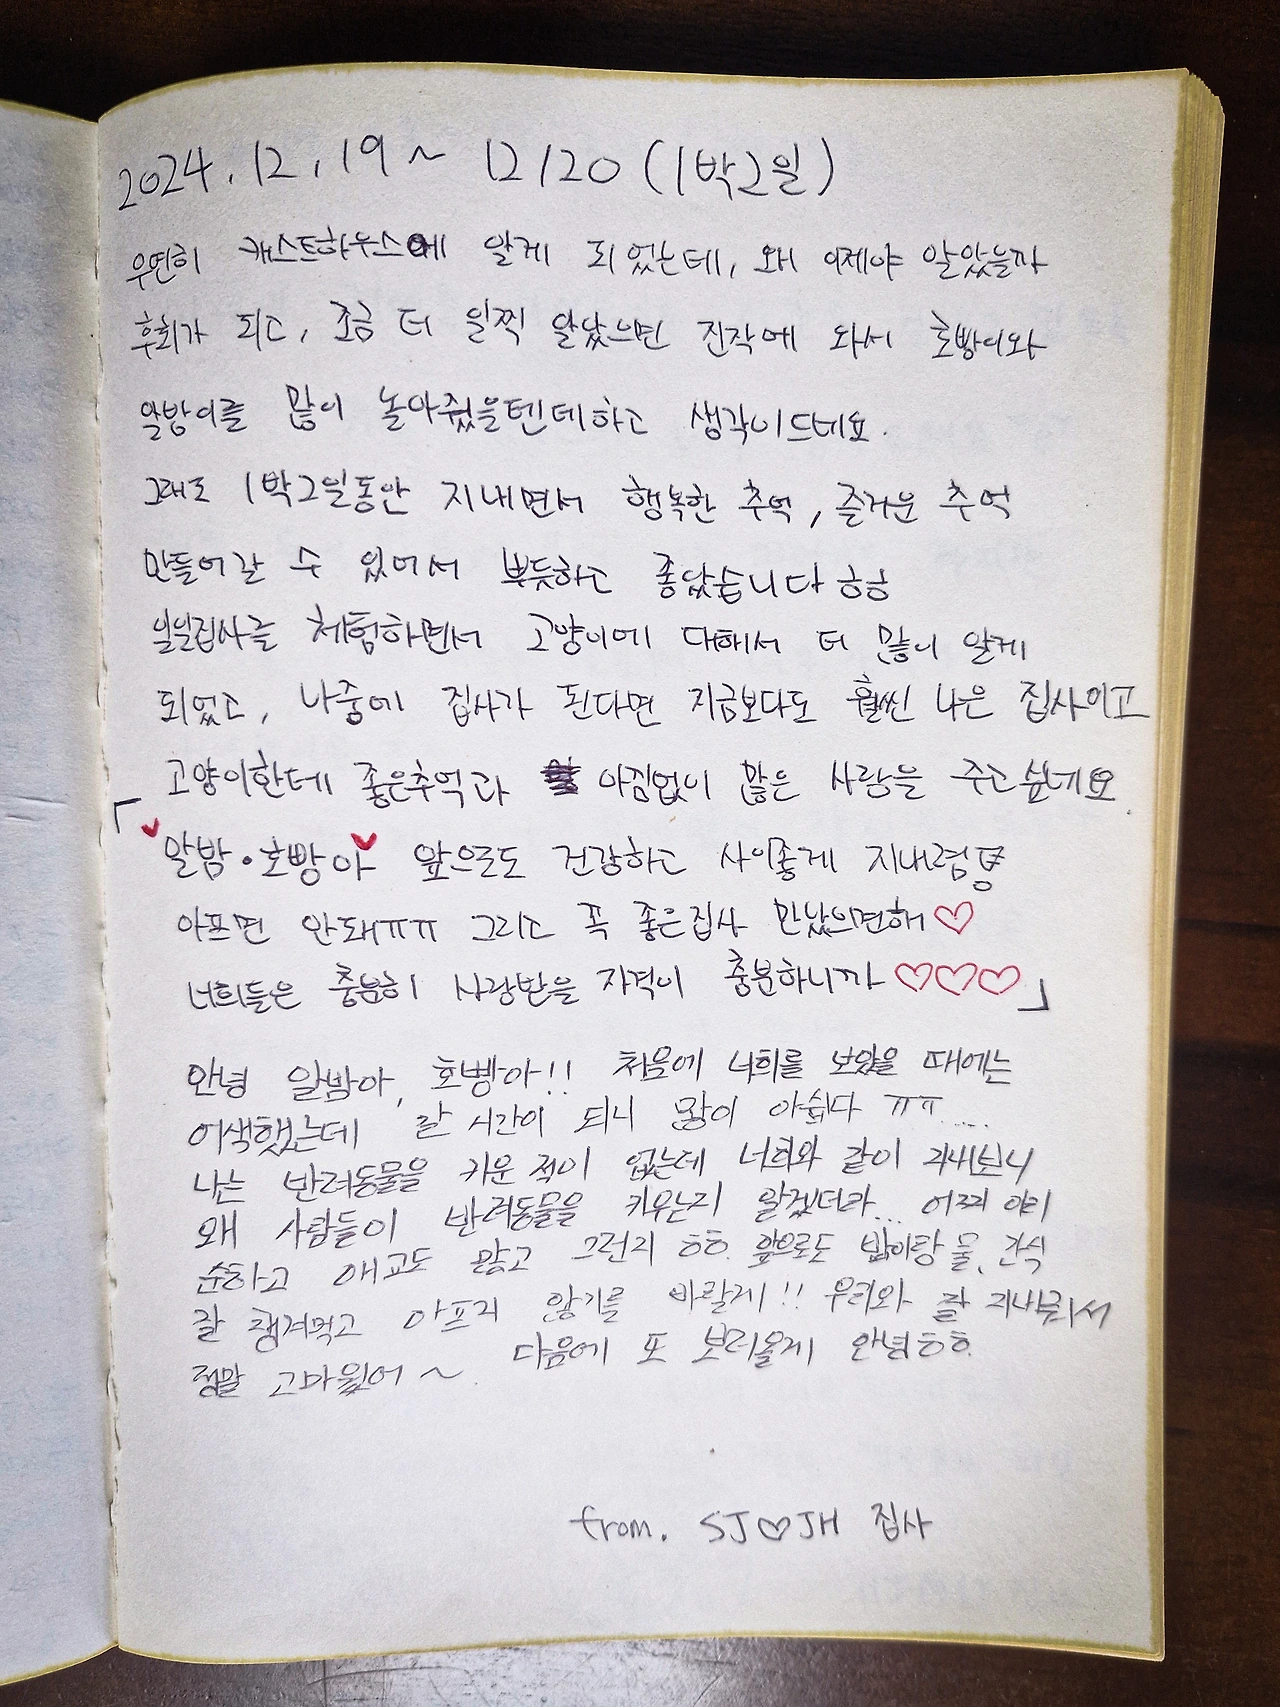 2024. 12. 19 ~ 12/20 (1박2일)
우연히 캐스트하우스에 알게 되었는데, 왜 이제야 알았을까
후회가 되고, 조금 더 일찍 알았으면 진작에 와서 호빵이와
알밤이를 많이 놀아줬을텐데하고 생각이드네요.
그래도 1박2일동안 지내면서 행복한 추억, 즐거운 추억
만들어갈 수 있어서 뿌듯하고 좋았습니다 ㅎㅎ
일일집사를 체험하면서 고양이에 대해서 더 많이 알게
되었고, 나중에 집사가 된다면 지금보다도 훨씬 나은 집사이고
고양이한테 좋은추억과 아낌없이 많은 사랑을 주고싶네요.
「알밤·호빵아 앞으로도 건강하고 사이좋게 지내렴
아프면 안돼ㅠㅠ 그리고 꼭 좋은집사 만났으면해♡
너희들은 충분히 사랑받을 자격이 충분하니까 ♡♡♡」
안녕 알밤아, 호빵아!! 처음에 너희를 보았을 때에는
어색했는데 갈 시간이 되니 많이 아쉽다 ㅠㅠ....
나는 반려동물을 키운 적이 없는데 너희와 같이 지내보니
왜 사람들이 반려동물을 키우는지 알겠더라... 어찌 이리
순하고 애교도 많고 그런지 ㅎㅎ. 앞으로도 밥이랑 물, 간식
잘 챙겨먹고 아프지 않기를 바랄게!! 우리와 잘 지내줘서
정말 고마웠어~. 다음에 또 보러올게 안녕ㅎㅎ.
from. SJ♡JH 집사